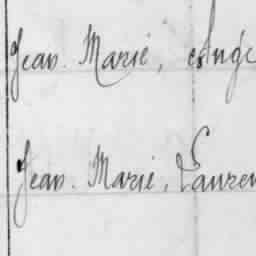 Jean. Marie, Ange
Jean. Marie, Lauren